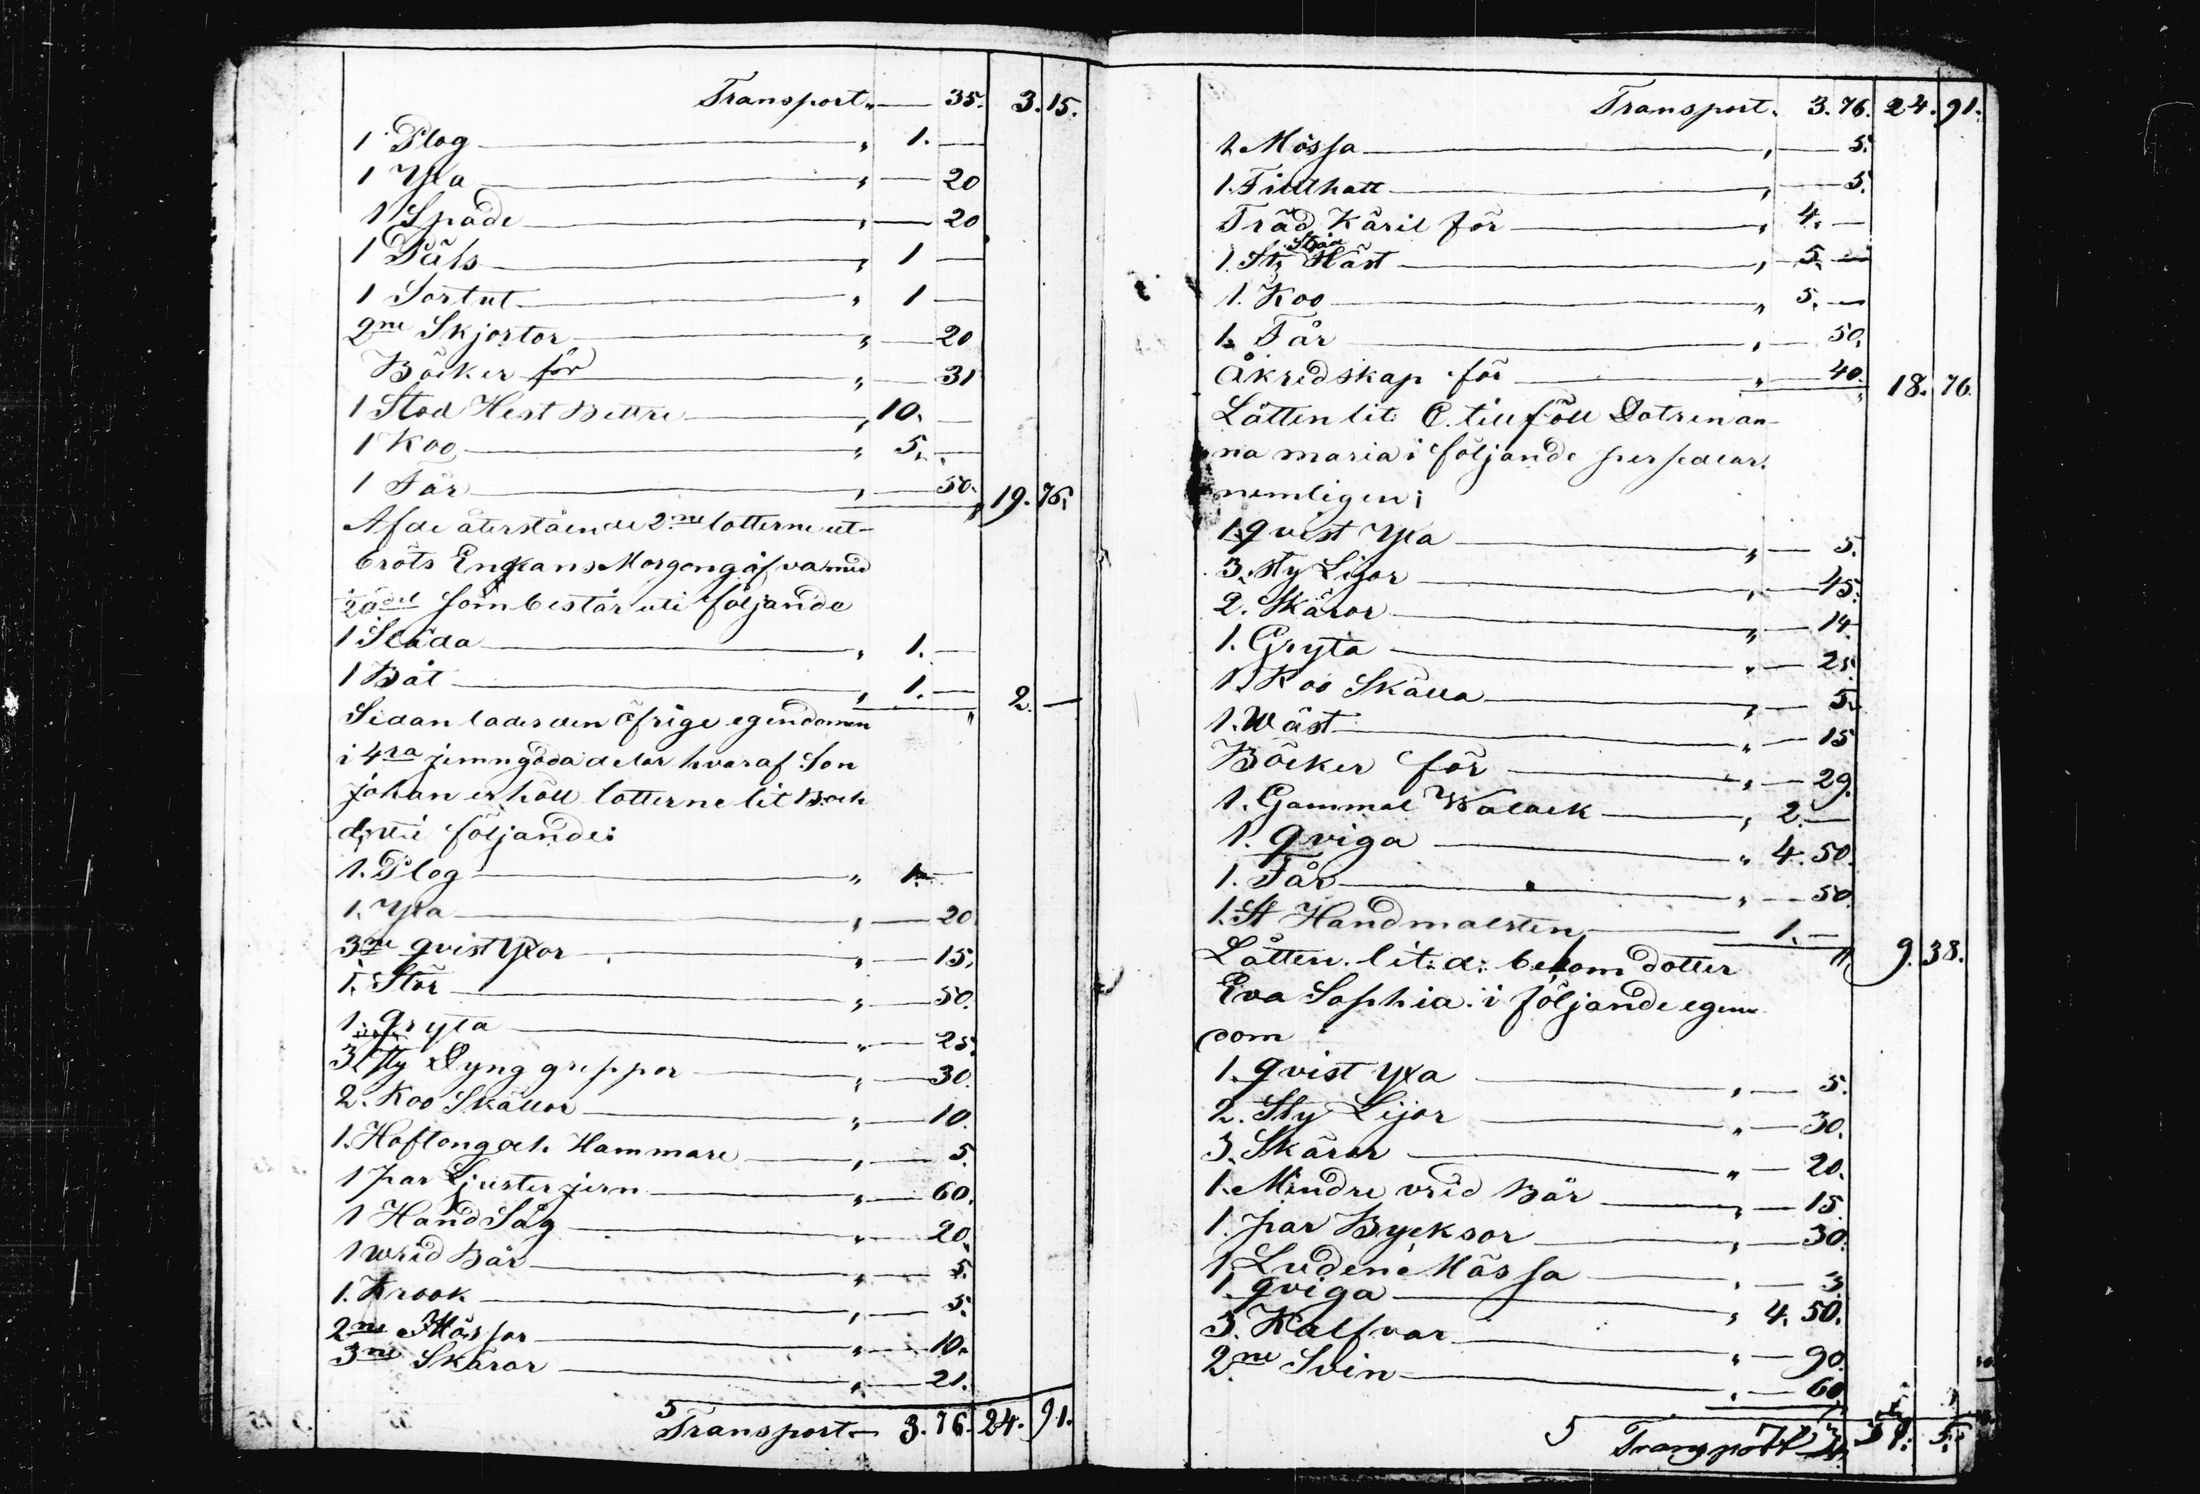 Transport „ — 35. 3. 15.
1 Plog „ 1. —
1 Yxa „ — 20
1 Spade „ — 20
1 Päls „ 1 —
1 Sortut „ 1 —
2ne Skjortor „ — 20
Böcker för „ — 31
1 Stod Hest Bettre „ 10. —
1 Koo „ 5. —
1 Får „ — 50. 19. 76.
Af de återstående 2ne lotterne ut-
bröts Enkans Morgongåfva med
20del som består uti följande
1 Släda „ 1. —
1 Båt „ 1. — 2. —
Sidan lades den öfrige egendomen
i 4ra jemngoda delar hvaraf Son
Johan erhöll lotterne lit B. och
d, uti följande:
1. Plog „ 1. —
1. Yxa „ — 20
3ne qvist Yxor „ — 15.
1. Stör „ — 50.
1. Gryta „ — 25.
3 sty Dyng greppor „ — 30.
2. Koo Skällor „ — 10.
1. Hoftong och Hammare „ — 5.
1 par Ljusterjern „ — 60.
1 Hand Såg „ — 20.
1 wrid Bår „ — 5.
1. Krook „ — 5.
2ne Mössor „ — 10.
3ne Skäror „ — 21.
5
Transport — 3. 76. 24. 91.
Transport. 3. 76. 24. 91.
1. Mössa „ — 5.
1. Filthatt „ — 5.
Träd Käril för „ 4. —
1. St. Häst „ 5. —
1. Koo „ 5. —
1. Får „ — 50.
Åkredskap för „ — 40. 18. 76.
Låtten lit: C. tillföll Dotren an-
na maria i följande persedlar.
nemligen;
1. qvist Yxa „ — 5.
3. sty Lijor „ — 45.
2. Skäror „ — 14.
1. Gryta „ — 25.
1. Koo Skälla „ — 5.
1. Wäst „ — 15
Böcker för „ — 29.
1. Gammal Walack „ 2. —
1. qviga „ 4. 50.
1. Får „ — 50.
1. St Handmalsten 1. — 9. 38.
Låtten. lit: a: bekom dotter
Eva Sophia. i följande egen
dom
1. qvist yxa „ — 5.
2. Sty Lijor „ — 30.
3. Skäror „ — 20.
1. Mindre vrid Bår „ — 15
1. par Bycksor „ — 30.
1. Luden Mössa „ — 3
1. qviga „ 4. 50.
3. Kalfvar „ — 90.
2ne Svin „ — 60
5 Transport